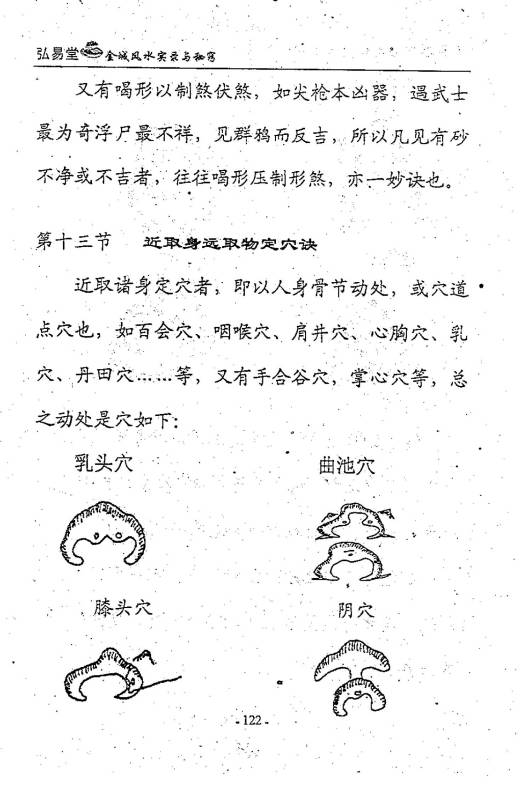 弘易堂 金城风水实录与秘窍
又有喝形以制煞伏煞，如尖枪本凶器，遇武士
最为奇浮尸最不祥，见群鸦而反吉，所以凡见有砂
不净或不吉者，往往喝形压制形煞，亦一妙诀也。
第十三节 近取身远取物定穴诀
近取诸身定穴者，即以人身骨节动处，或穴道
点穴也，如百会穴、咽喉穴、肩井穴、心胸穴、乳
穴、丹田穴……等，又有手合谷穴，掌心穴等，总
之动处是穴如下：
乳头穴 曲池穴
膝头穴 阴穴
- 122 -